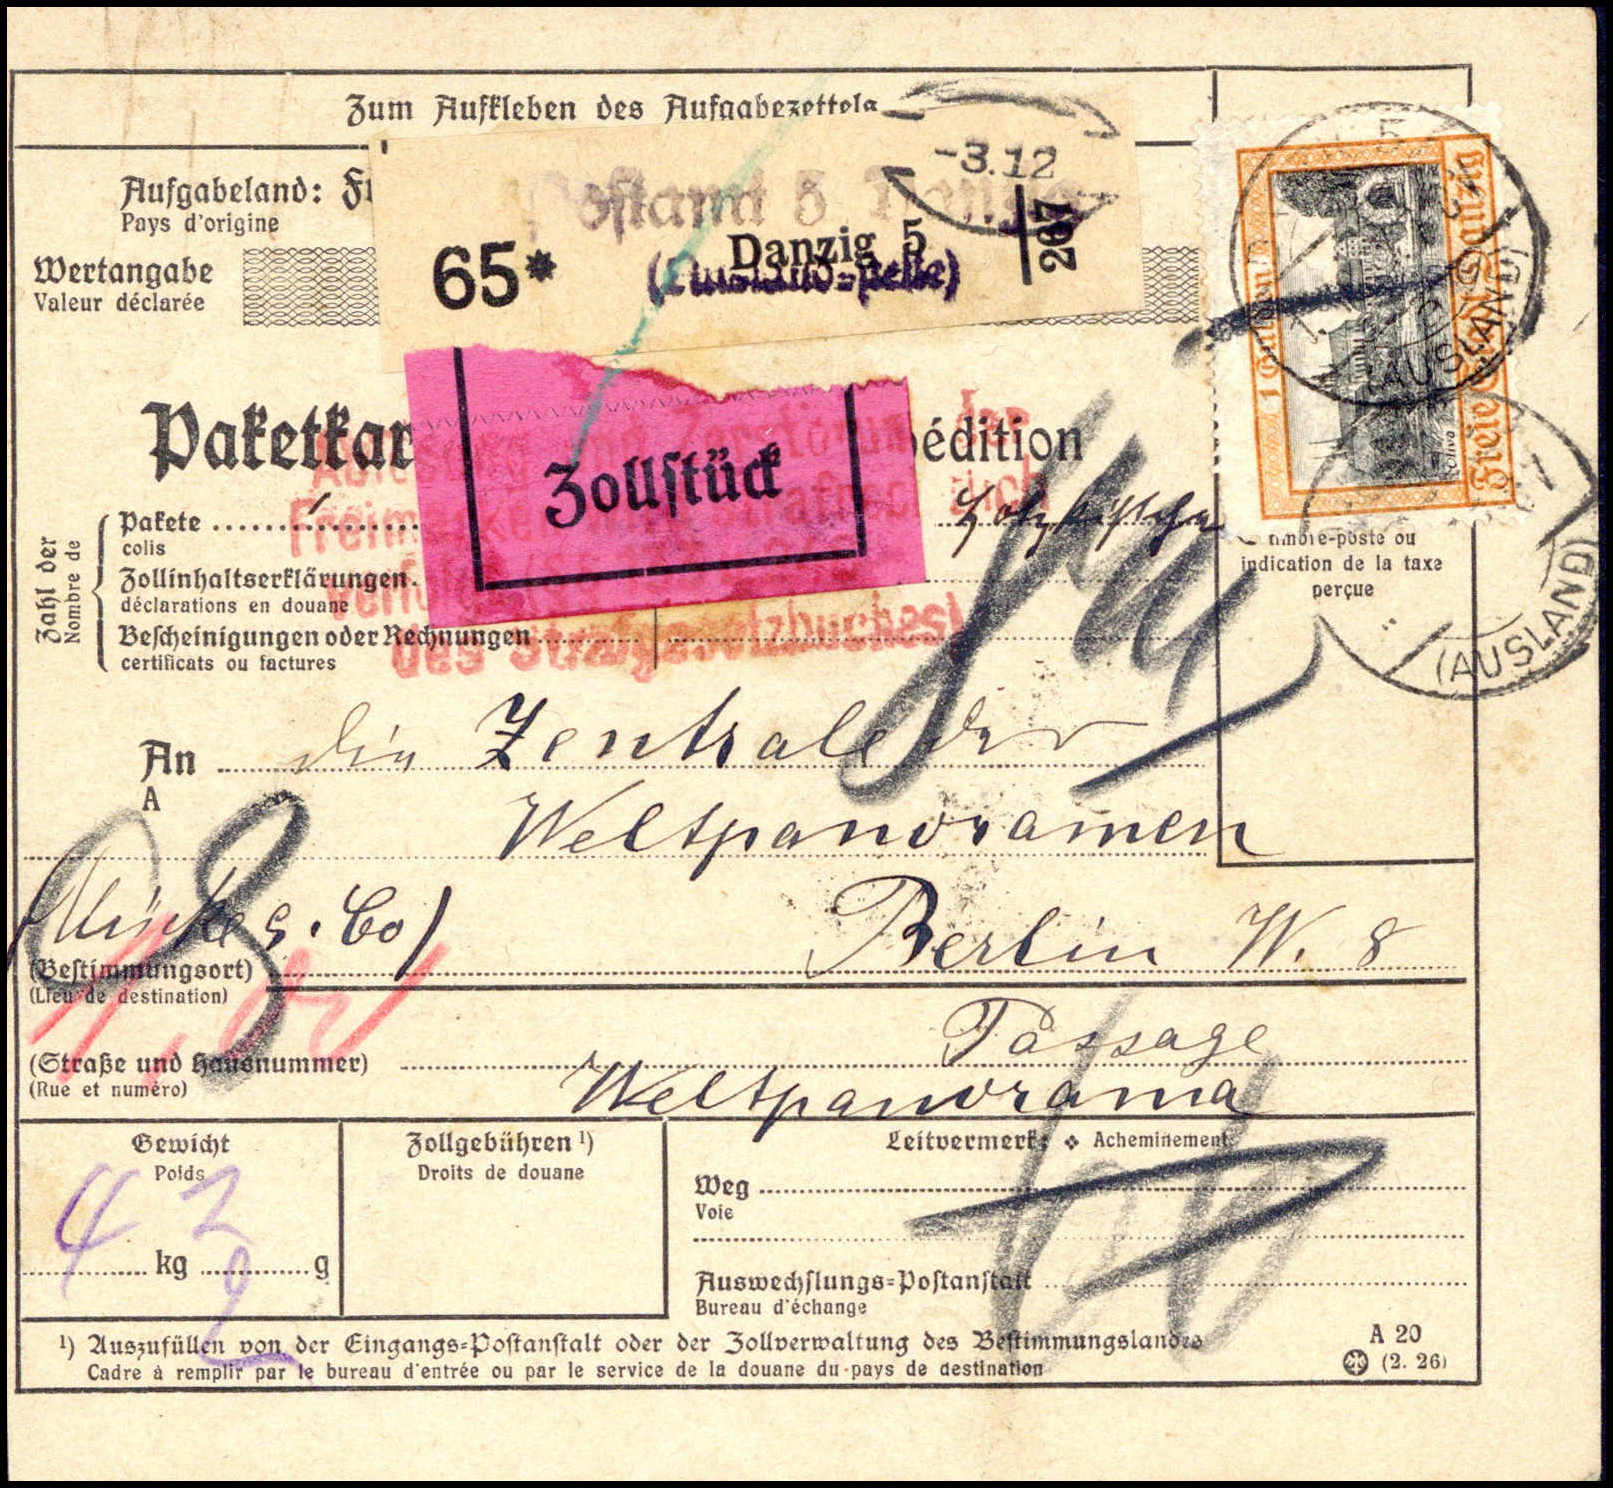 Zum Aufkleben des Aufgabezettels
-3.12
Aufgabeland:
Pays d'origine
Postamt 5 Danzig
65*
Danzig 5
267
(Auslandsstelle)
Wertangabe
Valeur déclarée
1 Gulden
Freie Stadt Danzig
Oliva
(AUSLAND)
Paketkar
édition
Zollstück
der
Freim
des Strafgesetzbuches)
Zahl der
Nombre de
Pakete 1
colis
Zollinhaltserklärungen
déclarations en douane
Bescheinigungen oder Rechnungen
certificats ou factures
timbre-poste ou
indication de la taxe
perçue
(AUSLAND)
An die Zentrale der
A
Weltpanoramen
Mücke & Co)
Berlin W. 8
(Bestimmungsort)
(Lieu de destination)
Passage
(Straße und Hausnummer)
(Rue et numéro)
Weltpanorama
Gewicht
Poids
4 kg g
Zollgebühren ¹)
Droits de douane
Leitvermerk: ❖ Acheminement
Weg
Voie
Auswechslungs=Postanstalt
Bureau d'échange
¹) Auszufüllen von der Eingangs=Postanstalt oder der Zollverwaltung des Bestimmungslandes
Cadre à remplir par le bureau d'entrée ou par le service de la douane du pays de destination
A 20
(2. 26)